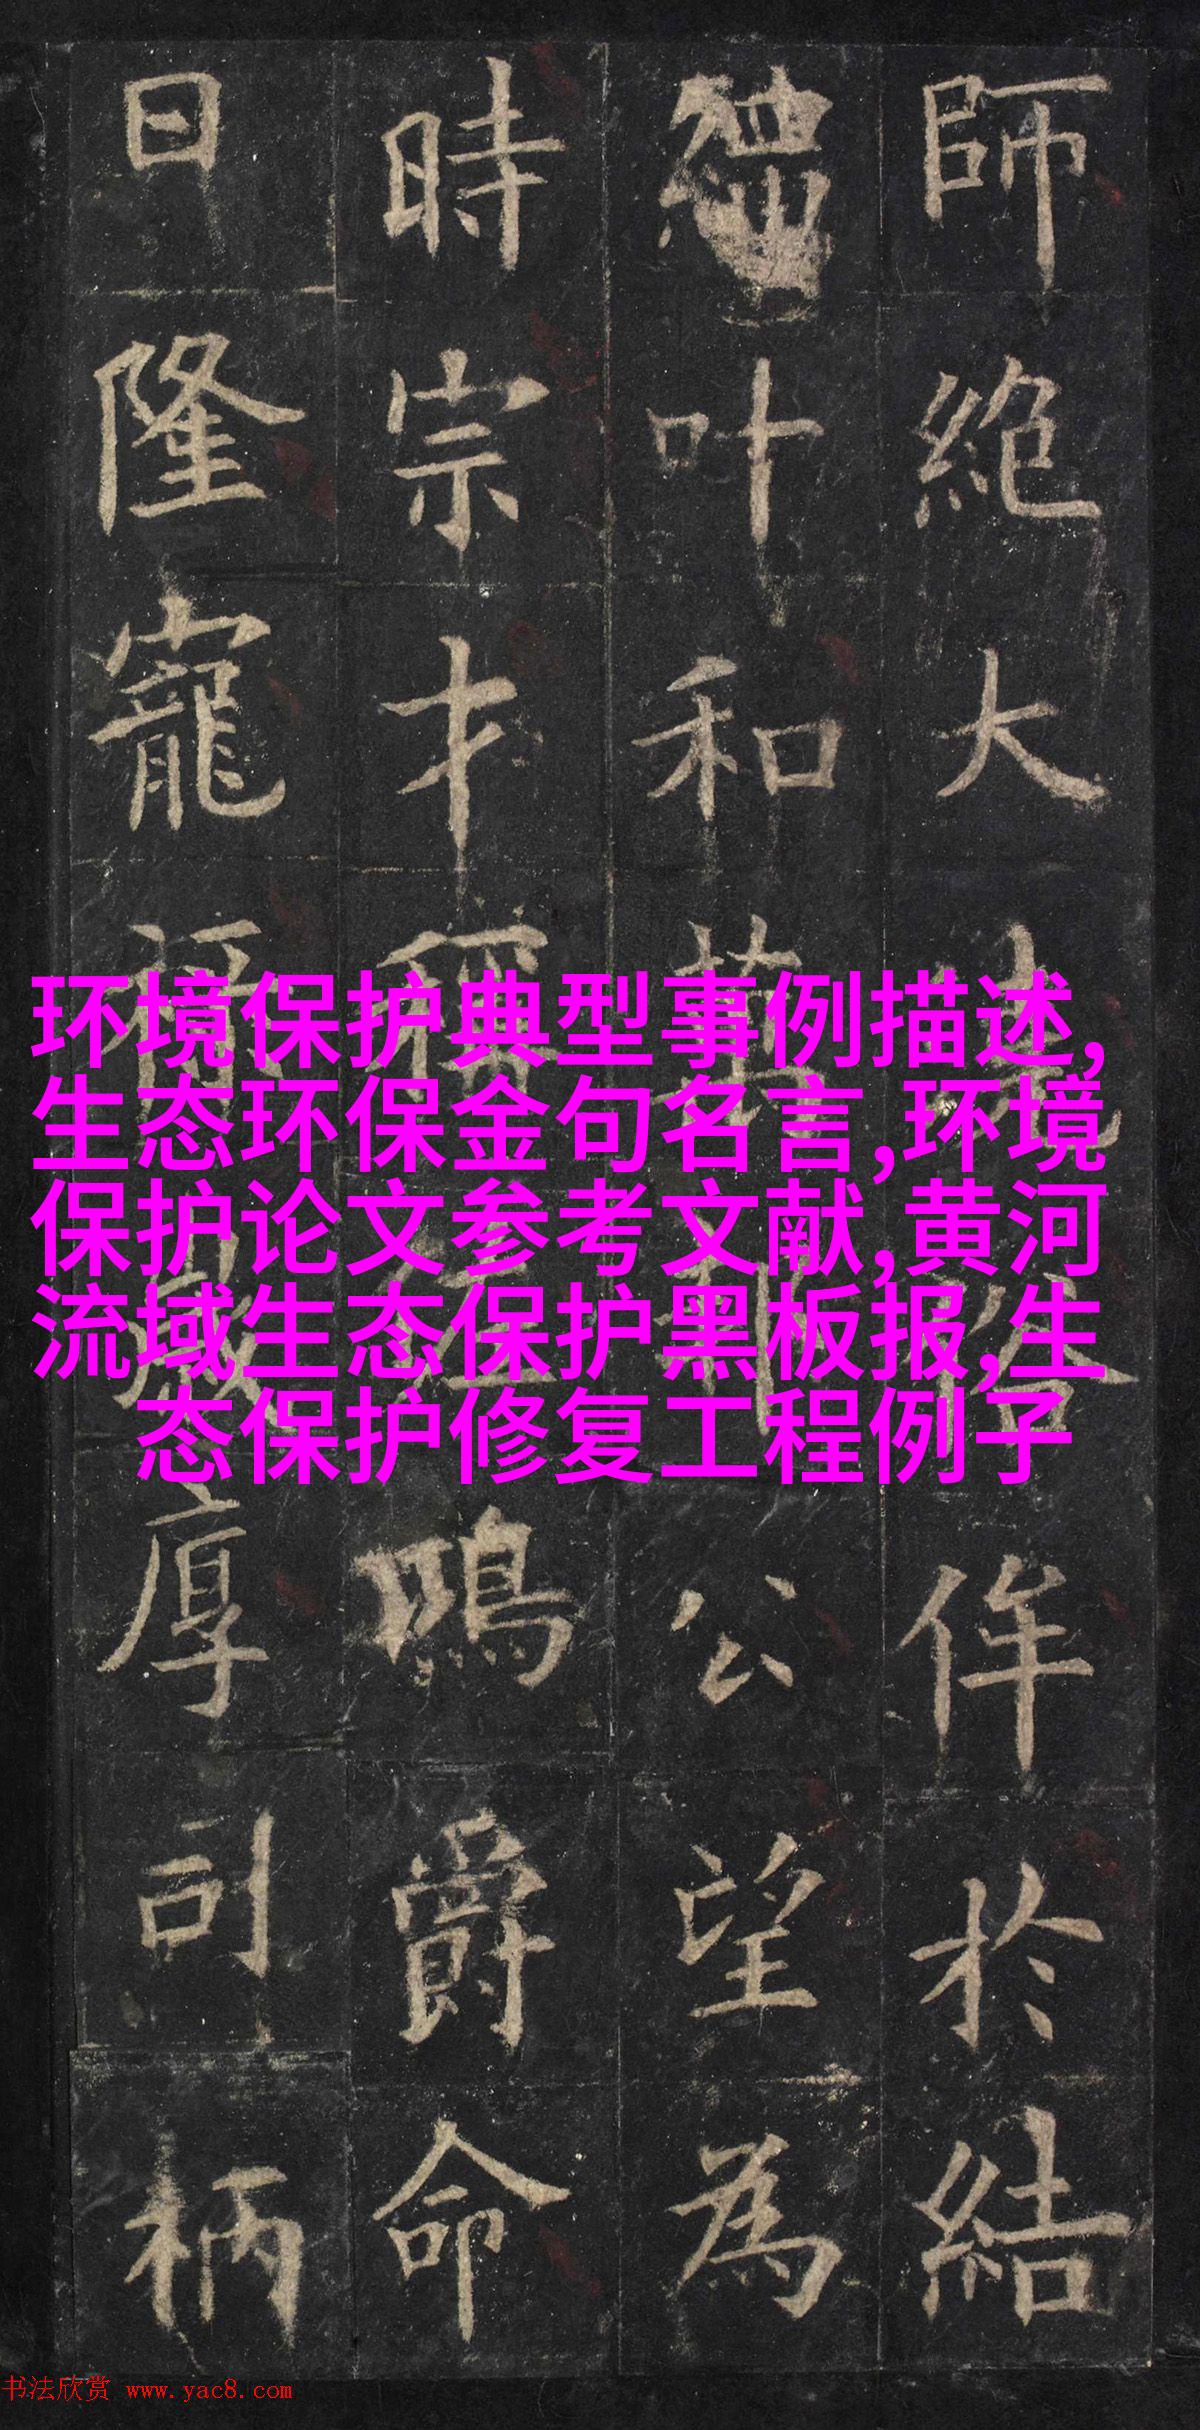 師絶大侔於結
叶和公望為
時宗才鳴爵命
日隆寵厚司柄
环境保护典型事例描述,
生态环保金句名言,环境
保护论文参考文献,黄河
流域生态保护黑板报,生
态保护修复工程例子
书法欣赏 www.yac8.com